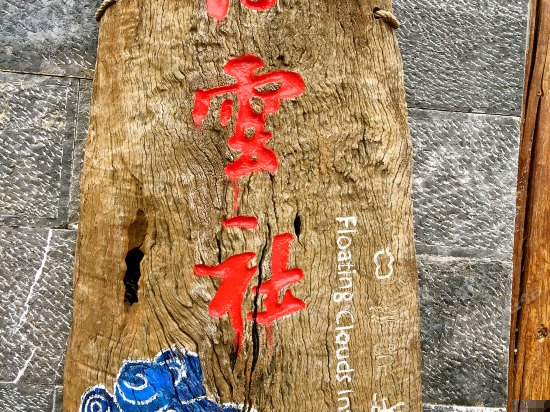 雲社
Floating Clouds In